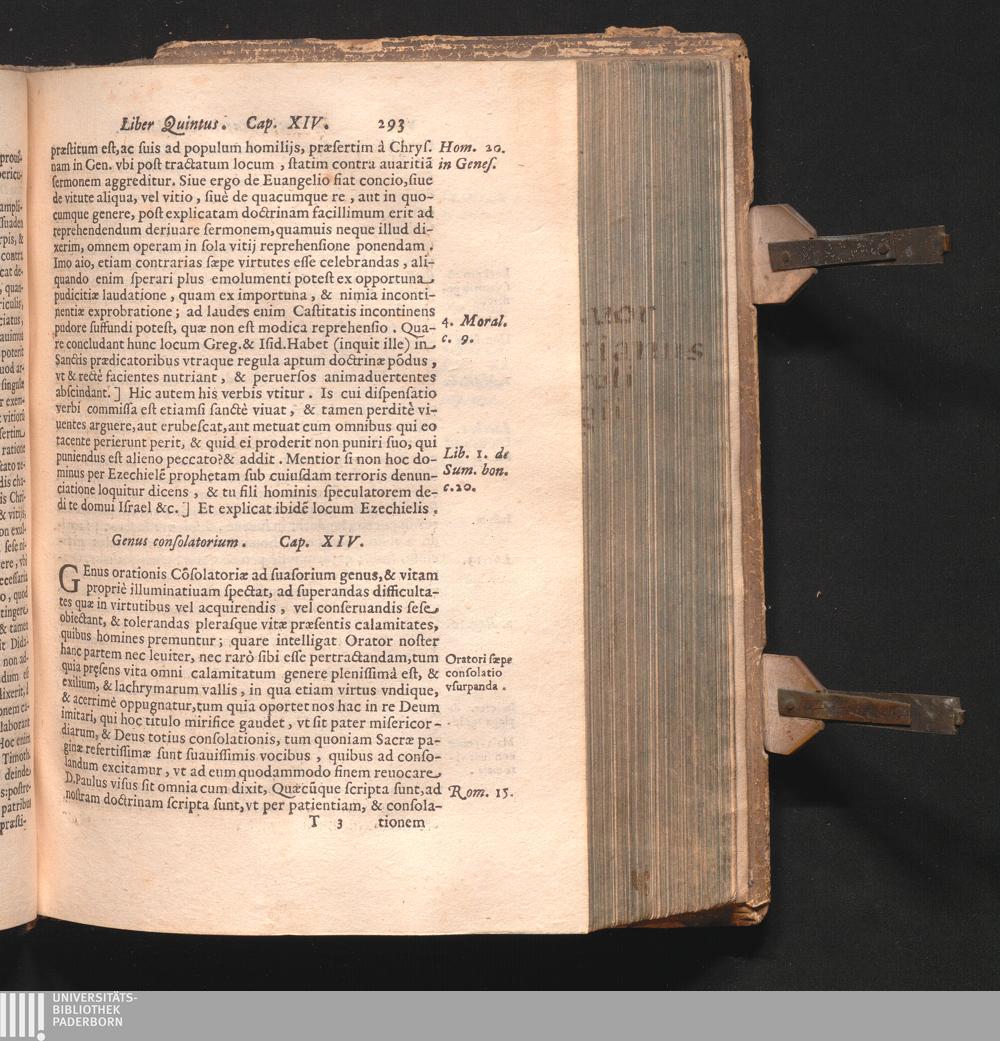 Liber Quintus. Cap. XIV. 293
præstitum est, ac suis ad populum homilijs, præsertim à Chrys. Hom. 20.
nam in Gen. vbi post tractatum locum, statim contra auaritiã in Genes.
sermonem aggreditur. Siue ergo de Euangelio fiat concio, siue
de vitute aliqua, vel vitio, siuè de quacumque re, aut in quo-
cumque genere, post explicatam doctrinam facillimum erit ad
reprehendendum deriuare sermonem, quamuis neque illud di-
xerim, omnem operam in sola vitij reprehensione ponendam.
Imo aio, etiam contrarias sæpe virtutes esse celebrandas, ali-
quando enim sperari plus emolumenti potest ex opportuna
pudicitiæ laudatione, quam ex importuna, & nimia inconti-
nentiæ exprobratione; ad laudes enim Castitatis incontinens
pudore suffundi potest, quæ non est modica reprehensio. Qua- 4. Moral.
re concludant hunc locum Greg. & Isid. Habet (inquit ille) in c. 9.
Sanctis prædicatoribus vtraque regula aptum doctrinæ põdus,
vt & rectè facientes nutriant, & peruersos animaduertentes
abscindant.] Hic autem his verbis vtitur. Is cui dispensatio
verbi commissa est etiamsi sanctè viuat, & tamen perditè vi-
uentes arguere, aut erubescat, aut metuat cum omnibus qui eo
tacente perierunt perit, & quid ei proderit non puniri suo, qui
puniendus est alieno peccato? & addit. Mentior si non hoc do- Lib. 1. de
minus per Ezechielẽ prophetam sub cuiusdam terroris denun- Sum. bon.
ciatione loquitur dicens, & tu fili hominis speculatorem de- c. 20.
di te domui Israel &c.] Et explicat ibidẽ locum Ezechielis.
Genus consolatorium. Cap. XIV.
GEnus orationis Cõsolatoriæ ad suasorium genus, & vitam
propriè illuminatiuam spectat, ad superandas difficulta-
tes quæ in virtutibus vel acquirendis, vel conseruandis sese
obiectant, & tolerandas plerasque vitæ præsentis calamitates,
quibus homines premuntur; quare intelligat Orator noster
hanc partem nec leuiter, nec rarò sibi esse pertractandam, tum Oratori sæpe
quia pręsens vita omni calamitatum genere plenissimà est, & consolatio
exilium, & lachrymarum vallis, in qua etiam virtus vndique, vsurpanda.
& acerrimè oppugnatur, tum quia oportet nos hac in re Deum
imitari, qui hoc titulo mirifice gaudet, vt sit pater misericor-
diarum, & Deus totius consolationis, tum quoniam Sacræ pa-
ginæ refertissimæ sunt suauissimis vocibus, quibus ad conso-
landum excitamur, vt ad eum quodammodo finem reuocare
D. Paulus visus sit omnia cum dixit, Quæcũque scripta sunt, ad Rom. 15.
nostram doctrinam scripta sunt, vt per patientiam, & consola-
T 3 tionem
UNIVERSITÄTS-
BIBLIOTHEK
PADERBORN